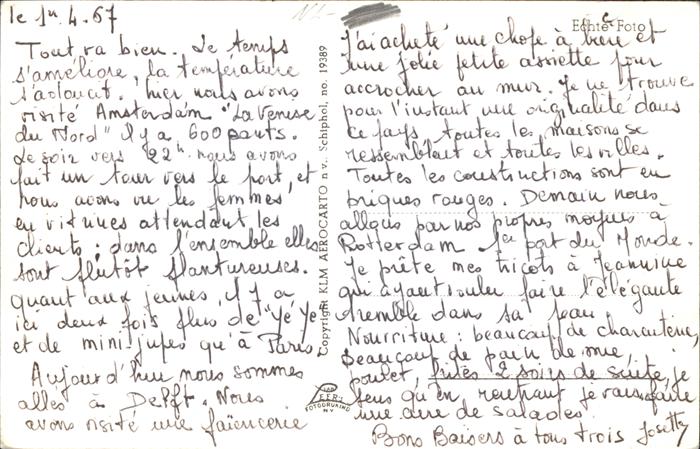 le 1er.4.67
Tout va bien. Le temps
s'améliore, la température
s'adoucit. hier nous avons
visité Amsterdam "La Venise
du Nord" Il y a 600 ponts.
Le soir vers 22h nous avons
fait un tour vers le port, et
nous avons vu les femmes
en vitrines attendant les
clients ; dans l'ensemble elles
sont plutôt plantureuses.
quant aux jeunes, il y a
ici deux fois plus de "Yé Yé"
et de mini-jupes qu'à Paris.
Aujourd'hui nous sommes
allés à Delft. Nous
avons visité une faïencerie
Copyright KLM AEROCARTO n.v. Schiphol, no. 19389
Echte Foto
J'ai acheté une chope à bière et
une jolie petite assiette pour
accrocher au mur. Je ne trouve
pour l'instant une originalité dans
ce pays toutes les maisons se
ressemblent et toutes les villes.
Toutes les constructions sont en
briques rouges. Demain nous
allons par nos propres moyens à
Rotterdam 1er port du Monde.
Je prête mes tricots à Jeannine
qui ayant voulu faire l'élégante
tremble dans sa peau.
Nourriture : beaucoup de charcuterie,
beaucoup de pain de mie,
poulet, frites 2 soirs de suite, je
sens qu'en rentrant je vais faire
une cure de salades.
Bons Baisers à tous trois Josette
VAN LEER'S
FOTODRUKIND
N.V.